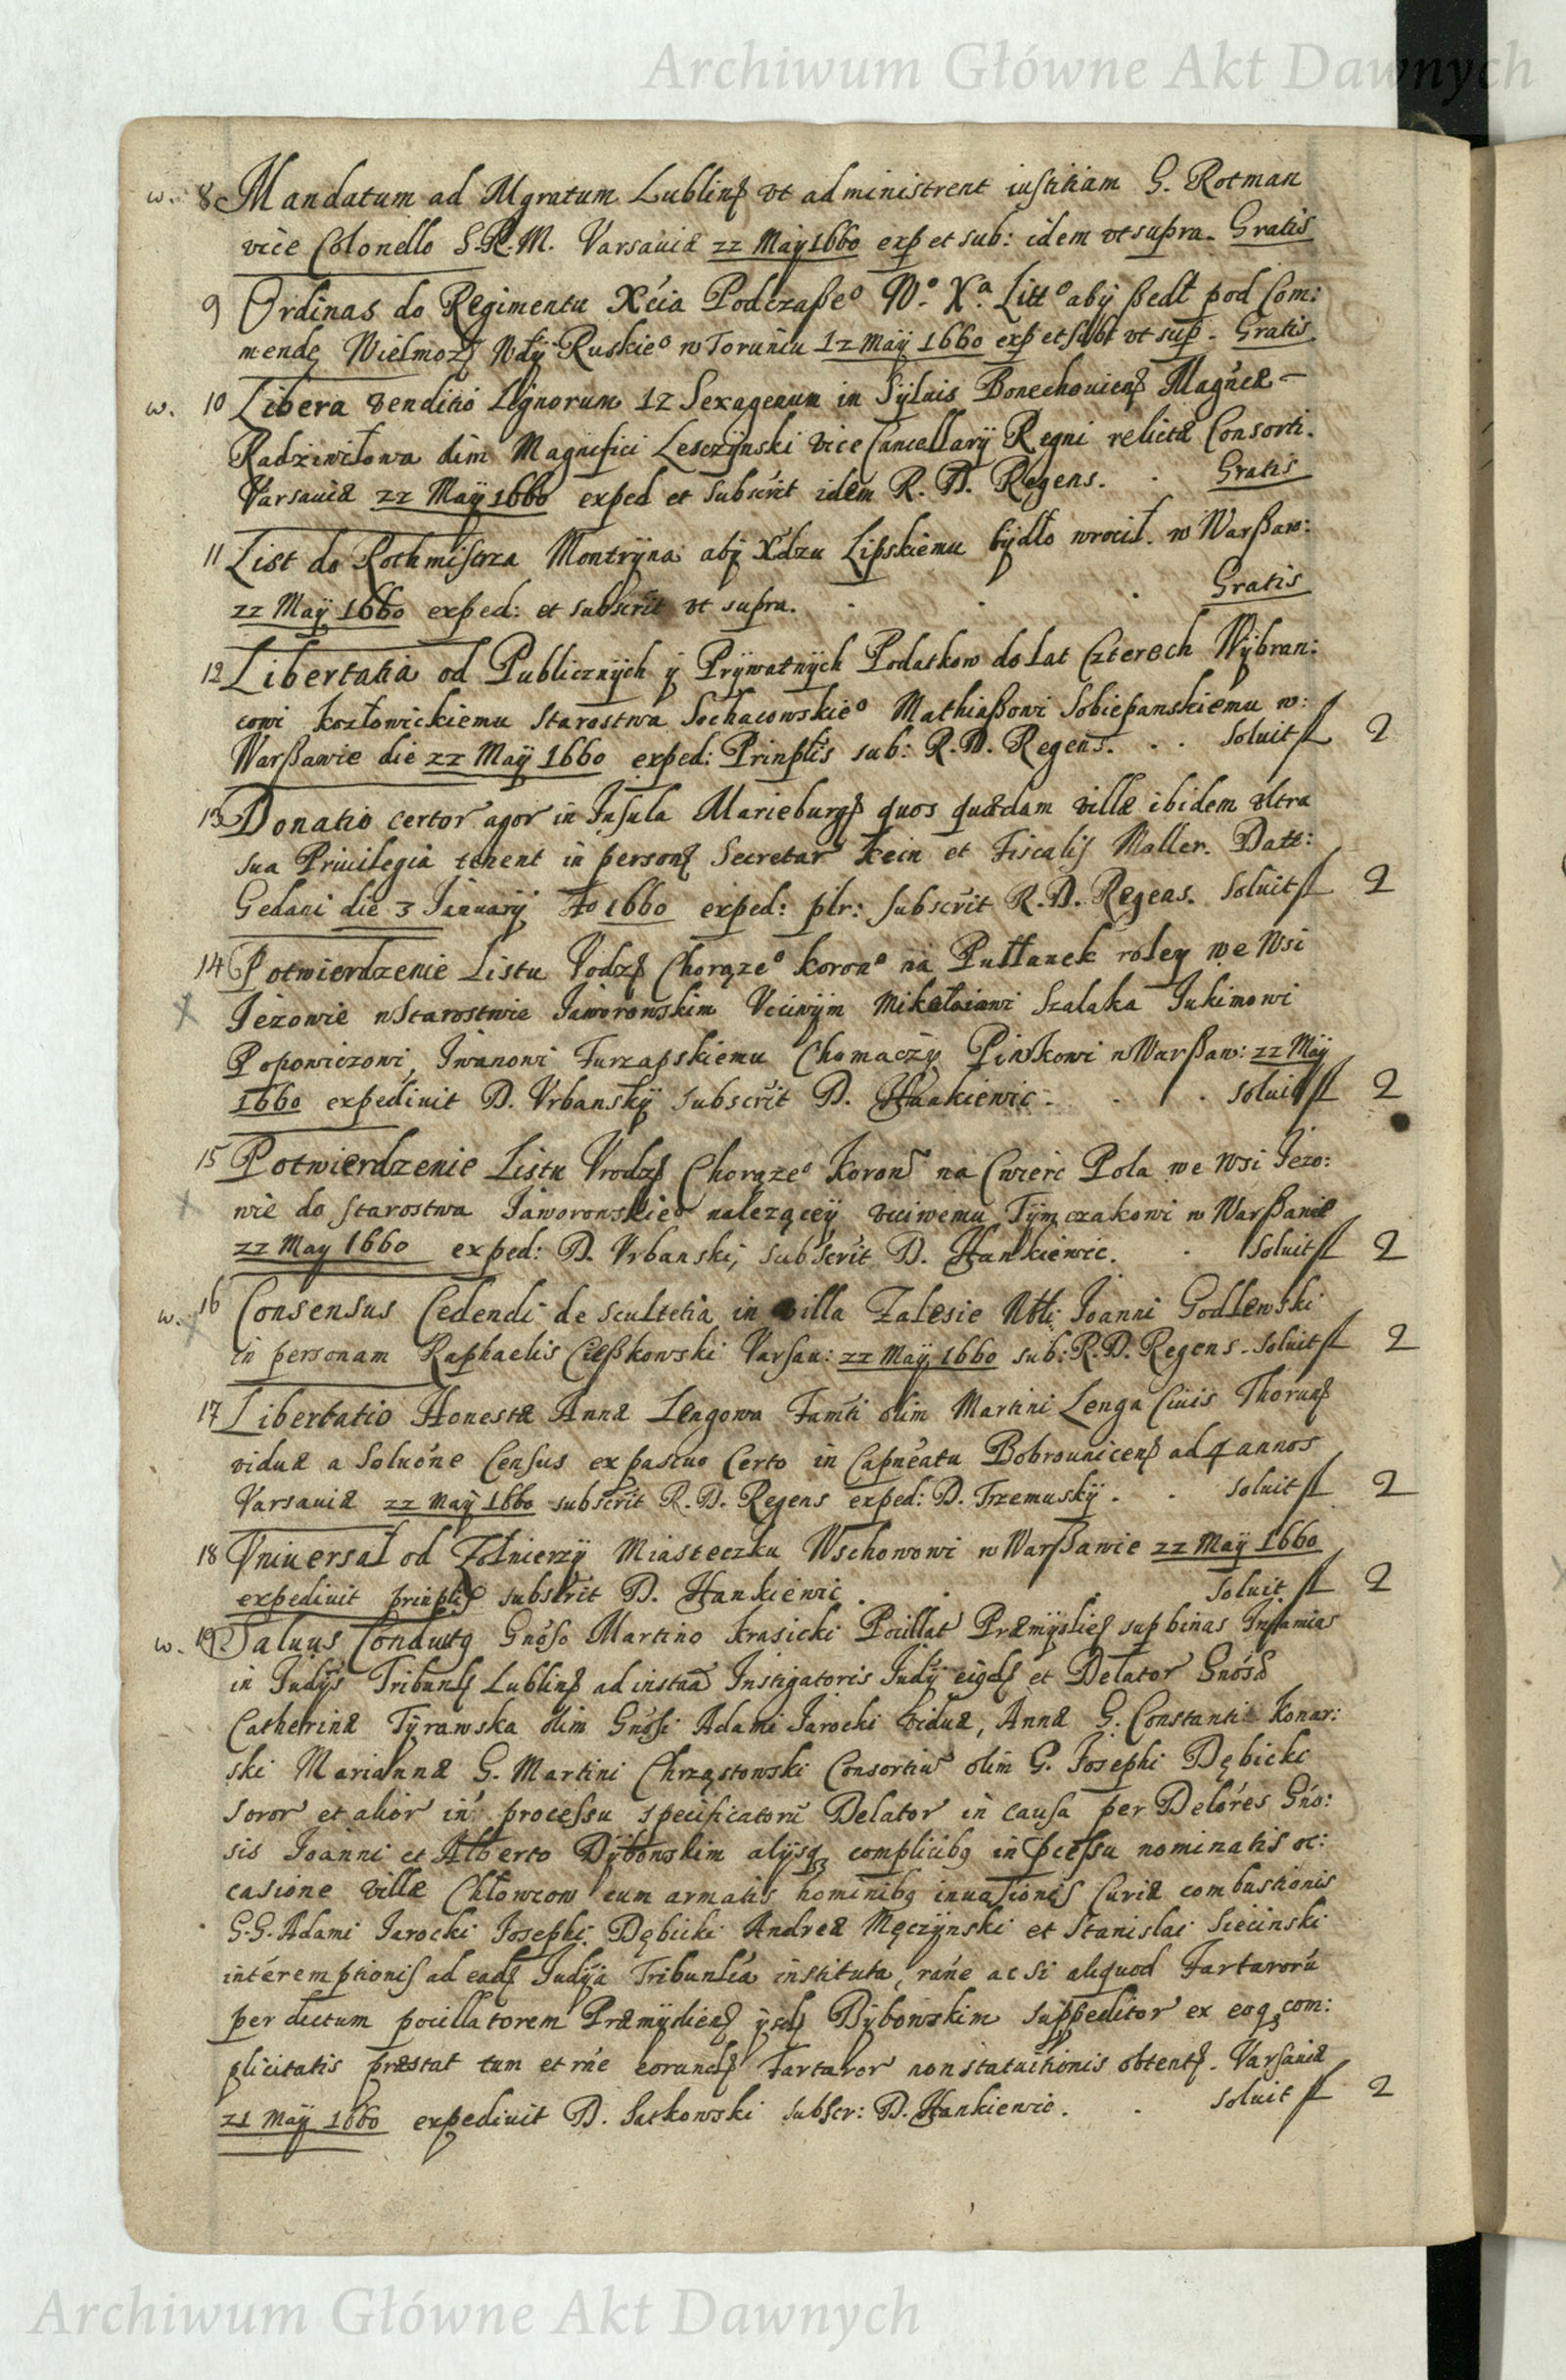 Archiwum Główne Akt Dawnych
w. 8 Mandatum ad Mgratum Lublinß vt administrent iustitiam G. Rotman
vice Colonello S.R.M. Varsauiæ 22 Maÿ 1660 exp et sub: idem vt supra. Gratis
9 Ordinas do Regimentu Xcia Podczaßeº Wº Xª Littº abÿ ßedł pod Com:
mendę Wielmozß Wdÿ Ruskieº w Toruniu 12 Maÿ 1660 exp et subt vt sup. Gratis
w. 10 Libera venditio Lignorum 12 Sexagenum in Sÿluis Bonechouienß Magncæ
Radziwiłowa dim Magnifici Lesczÿnski Vice Cancellarÿ Regni relictæ Consorti.
Varsauiæ 22 Maÿ 1660 exped et Subscrit idem R. D. Regens. Gratis
11 List do Rothmistrza Montrÿna abÿ Xdzu Lipskiemu bÿdło wrocił. w Warßaw:
22 Maÿ 1660 exped: et subscrit vt supra. Gratis
12 Libertatia od Publicznÿch ÿ Prÿwatnÿch Podatkow do lat Czterech Wÿbran:
cowi Kozłowickiemu Starostwa Sochacowskieº Mathiaßowi Sobiepanskiemu w:
Warßawie die 22 Maÿ 1660 exped: Prinplis sub: R. D. Regens. Soluit fl 2
13 Donatio certor agor in Insula Marieburgß quos quædam villæ ibidem vltra
sua Priuilegia tenent in personß Secretar Kein et Fiscalis Moller. Datt:
Gedani die 3 Januarÿ Aº 1660 exped: plr: Subscrit R. D. Regens. Soluit fl 2
14 Potwierdzenie Listu Vrodzß Chorązeº Koronº na Pułłanek roley we Wsi
Jezowie w Starostwie Jaworowskim Vcciwÿm Mikołaiowi Szalaka Jukimowi
Popowiczowi, Iwanowi Turzapskiemu Chomaczÿ Pinkowi w Warßaw: 22 Maÿ
1660 expediuit D. Vrbanskÿ Subscrit D. Hankiewic. Soluit fl 2
15 Potwierdzenie Listu Vrodzß Chorązeº Koronß na Cwierc Pola we Wsi Jezo:
wie do Starostwa Jaworowskieº nalezącey vcciwemu Tÿmczakowi w Warßawie
22 May 1660 exped: D. Vrbanski, Subscrit D. Hankiewic. Soluit fl 2
w. 16 Consensus Cedendi de Scultetia in villa Zalesie Nbli Joanni Godlewski
in personam Raphaelis Cießkowski Varsau: 22 Maÿ 1660 sub: R. D. Regens. Soluit fl 2
17 Libertatio Honestæ Annæ Lengowa Famti olim Martini Lenga Ciuis Thorunß
viduæ a Soluone Census ex pascuo Certo in Capneatu Bobrounicenß ad 4 annos
Varsauiæ 22 Maÿ 1660 subscrit R. D. Regens exped: D. Trzemuskÿ. Soluit fl 2
18 Vniuersał od Zołnierzÿ Miasteczku Wschowowi w Warßawie 22 Maÿ 1660
expediuit prinplis subscrit D. Hankiewic. Soluit fl 2
w. 19 Saluus Conductq Gnoso Martino Krasicki Pocillat Præmÿsließ sup binas Infamias
in Judÿs Tribunlß Lublinß ad instaã Instigatoris Judÿ eigdß et Delator Gnosæ
Catherinæ Tÿrawska olim Gnosi Adami Jarocki Viduæ, Annæ G. Constanti Konar:
ski Mariannæ G. Martini Chrząstowski Consortiu olim G. Josephi Dębicki
Soror et alior in processu specificatorũ Delator in causa per Delores Gno:
sis Joanni et Alberto Dÿbowskim alÿsq complicibq in pcessu nominatis oc:
casione villæ Chłowcow cum armatis hominibq inuasionis Curiæ combustionis
G.G. Adami Jarocki Josephi Dębicki Andreæ Męczÿnski et Stanislai Siecinski
interemptionis ad eadß Judÿa Tribunlia instituta, rane ac si aliquod Tartarorũ
per dictum pocillatorem Præmÿslienß ÿsdß Dÿbowskim suppeditor ex eoq com:
plicitatis præstat tum et rne eorundß Tartaror non statuitionis obtentß. Varsauiæ
21 Maÿ 1660 expediuit D. Satkowski Subscr: D. Hankiewic. Soluit fl 2
Archiwum Główne Akt Dawnych